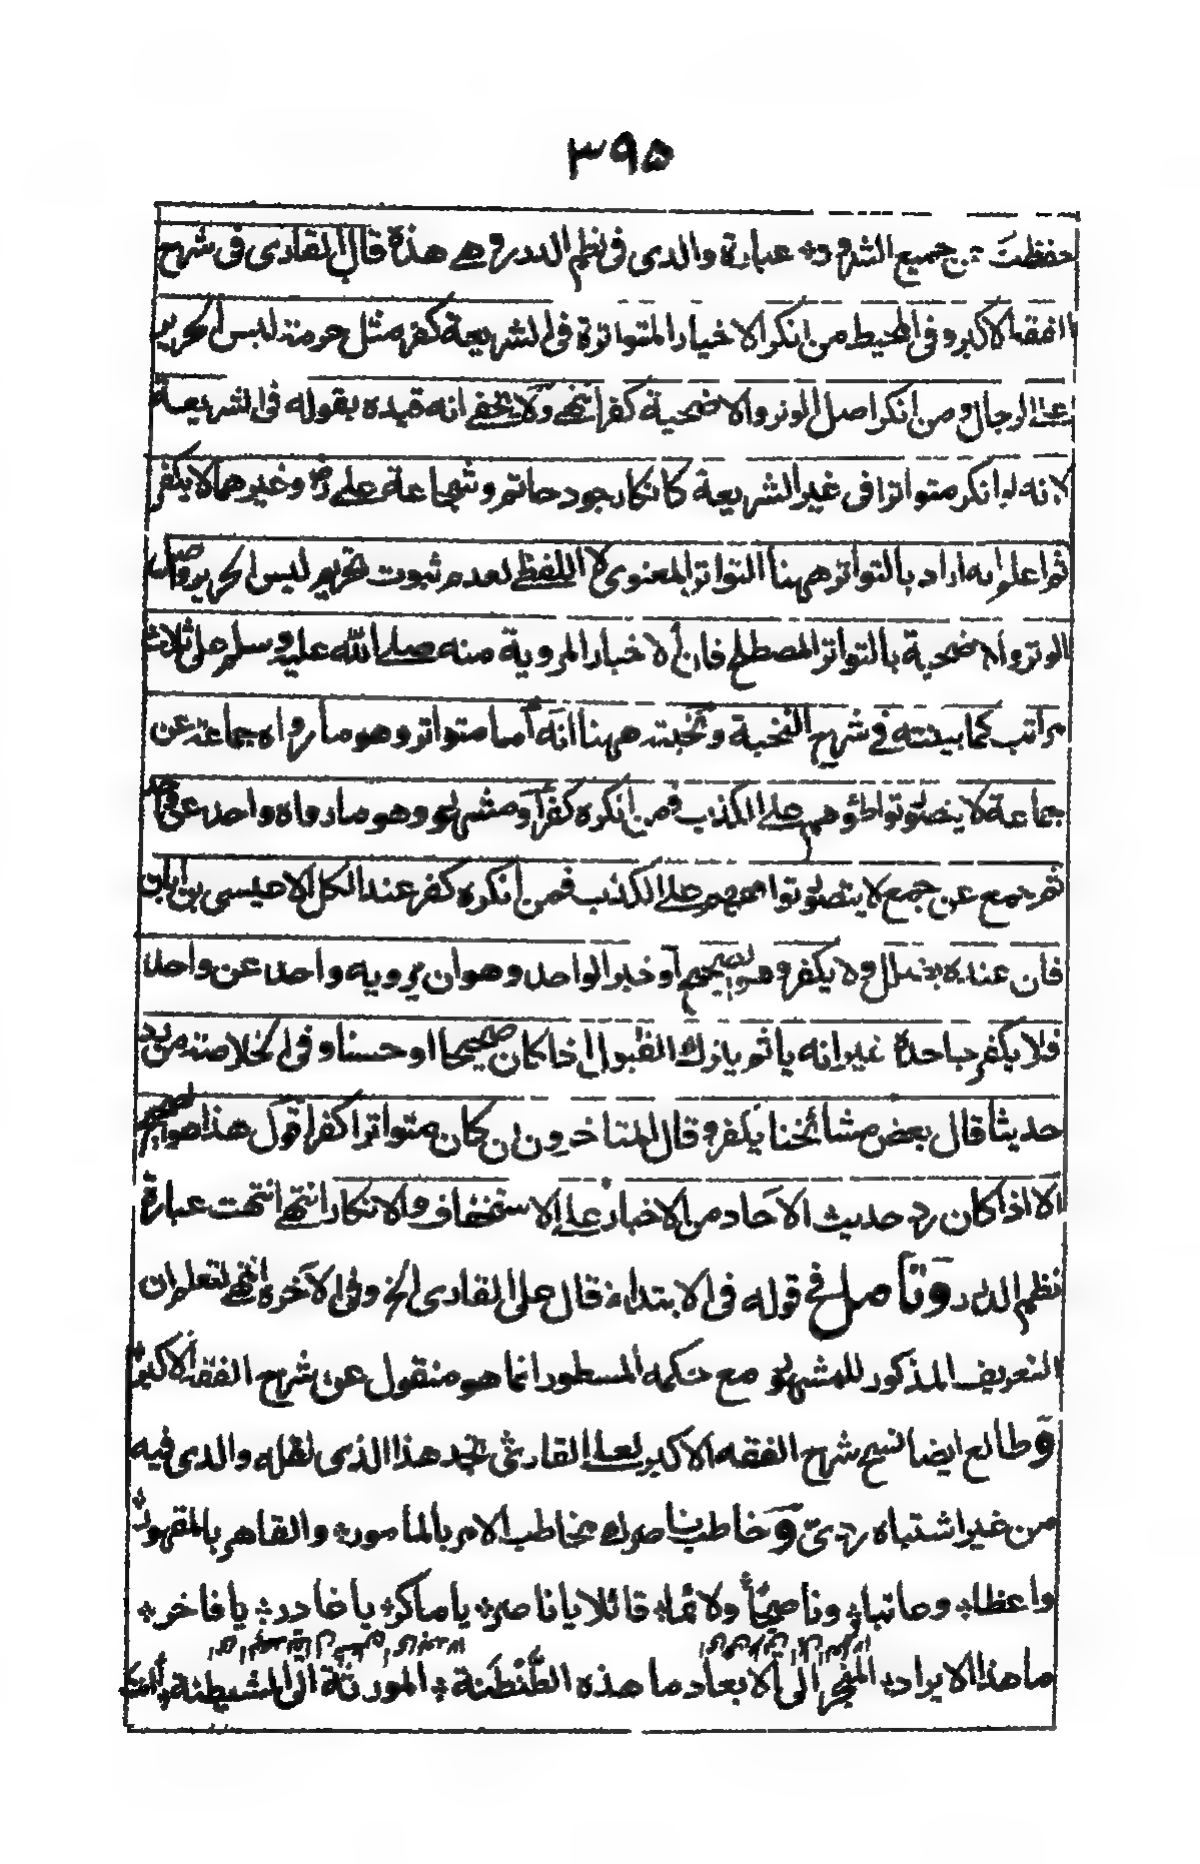 ٣٩٥
حفظت عن جميع الشرور * عبارة والدى فى نظم الدرر وهى هذه قال القارى فى شرح
الفقه الاكبر وفى المحيط من انكر الاخبار المتواترة فى الشريعة كفر مثل حرمة لبس الحرير
على الرجال ومن انكر اصل الوتر والاضحية كفر انتهى ولا يخفى انه قيده بقوله فى الشريعة
لانه لو انكر متواترا فى غير الشريعة كانكار جود حاتم وشجاعة على رض وغيرهما لا يكفر
ثم اعلم انه اراد بالتواتر ههنا التواتر المعنوى لا اللفظى لعدم ثبوت تحريم لبس الحرير واصل
الوتر والاضحية بالتواتر المصطلح فان الاخبار المروية منه صلى الله عليه وسلم على ثلاث
مراتب كما بينته فى شرح النخبة ونخبته ههنا انه اما متواتر وهو ما رواه جماعة عن
جماعة لا يتصور تواطؤهم على الكذب فمن انكره كفر او مشهور وهو ما رواه واحد عن واحد
ثم جمع عن جمع لا يتصور توافقهم على الكذب فمن انكره كفر عند الكل الا عيسى بن ابان
فان عنده يضلل ولا يكفر وهو الصحيح او خبر الواحد وهو ان يرويه واحد عن واحد
فلا يكفر جاحده غير انه ياثم بترك القبول اذا كان صحيحا او حسنا وفى الخلاصة من رد
حديثا قال بعض مشائخنا يكفر وقال المتاخرون ان كان متواترا كفر اقول هذا هو الصحيح
الا اذا كان رد حديث الآحاد من الاخبار على الاستخفاف والانكار انتهى انتهت عبارة
نظم الدرر وتأمل فى قوله فى الابتداء قال على القارى الخ وفى الآخره انتهى لتعلم ان
التعريف المذكور للمشهور مع حكمه المسطور انما هو منقول عن شرح الفقه الاكبر
وطالع ايضا نسخ شرح الفقه الاكبر لعلى القارى تجد هذا الذى نقله والدى فيه
من غير اشتباه ردى وخاطب ناصرك مخاطب الامر بالمأمور * والقاهر بالمقهور *
واعظا * وعاتبا * وناصحا * ولائما * قائلا يا ناصر * يا ماكر * يا غادر * يا فاخر *
ما هذا الايراد * المنجر الى الابعاد ما هذه الطنطنة * المورثة الى الشيطنة *